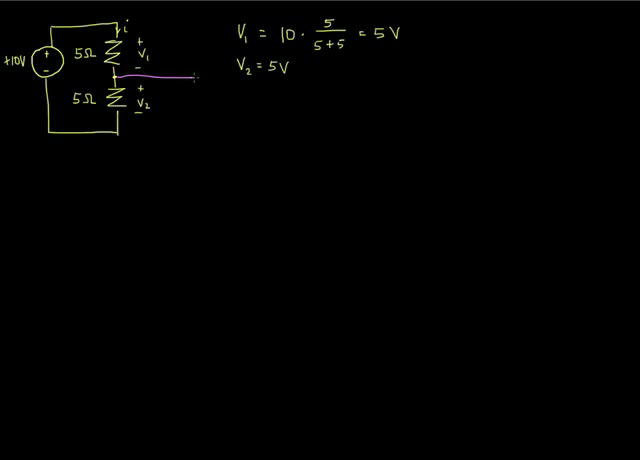 i
+
+10V + 5Ω V₁
- -
+
5Ω V₂
-
V₁ = 10 · 5/(5+5) = 5 V
V₂ = 5V